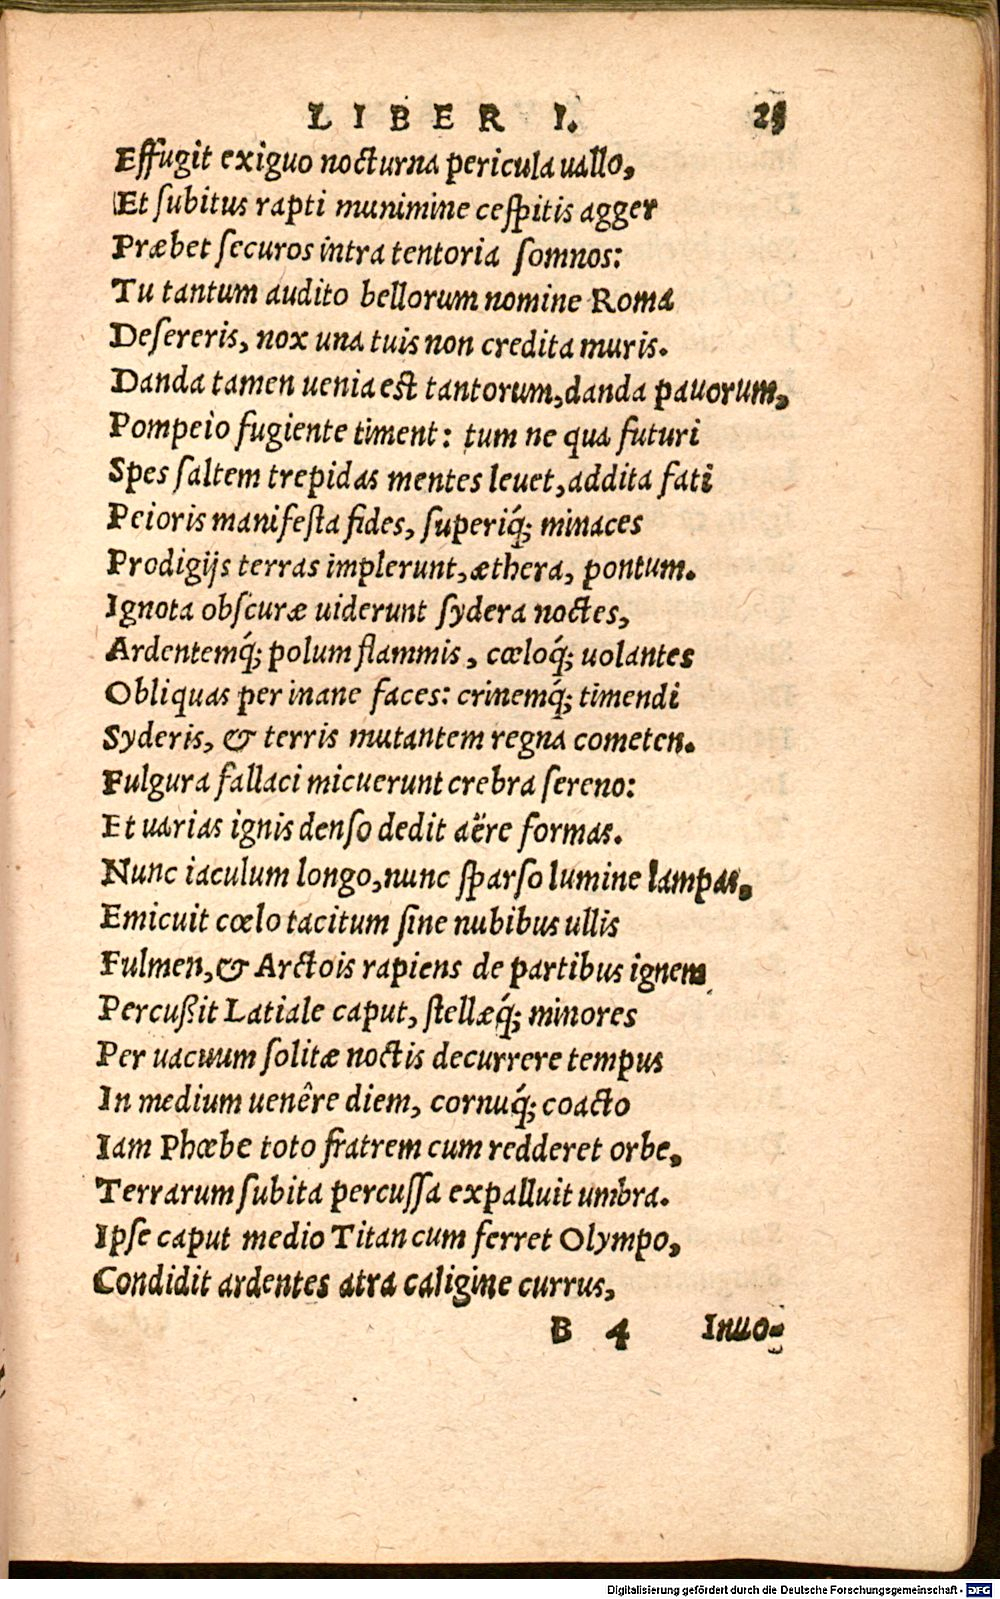 LIBER I. 25
Effugit exiguo nocturna pericula uallo,
Et ſubitus rapti munimine ceſpitis agger
Præbet ſecuros intra tentoria ſomnos:
Tu tantum audito bellorum nomine Roma
Deſereris, nox una tuis non credita muris.
Danda tamen uenia est tantorum, danda pauorum,
Pompeio fugiente timent: tum ne qua futuri
Spes ſaltem trepidas mentes leuet, addita fati
Peioris manifeſta fides, ſuperiq́; minaces
Prodigijs terras implerunt, æthera, pontum.
Ignota obſcuræ uiderunt ſydera noctes,
Ardentemq́; polum flammis, cœloq́; uolantes
Obliquas per inane faces: crinemq́; timendi
Syderis, & terris mutantem regna cometen.
Fulgura fallaci micuerunt crebra ſereno:
Et uarias ignis denſo dedit aëre formas.
Nunc iaculum longo, nunc ſparſo lumine lampas,
Emicuit cœlo tacitum ſine nubibus ullis
Fulmen, & Arctois rapiens de partibus ignem
Percußit Latiale caput, ſtellæq́; minores
Per uacuum ſolitæ noctis decurrere tempus
In medium uenêre diem, cornuq́; coacto
Iam Phœbe toto fratrem cum redderet orbe,
Terrarum ſubita percuſſa expalluit umbra.
Ipſe caput medio Titan cum ferret Olympo,
Condidit ardentes atra caligine currus,
B 4 Inuo-
Digitalisierung gefördert durch die Deutsche Forschungsgemeinschaft - DFG